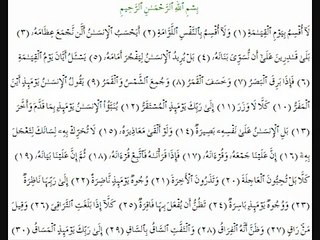 بِسْمِ ٱللَّهِ ٱلرَّحْمَٰنِ ٱلرَّحِيمِ
لَآ أُقْسِمُ بِيَوْمِ ٱلْقِيَٰمَةِ (١) وَلَآ أُقْسِمُ بِٱلنَّفْسِ ٱللَّوَّامَةِ (٢) أَيَحْسَبُ ٱلْإِنسَٰنُ أَلَّن نَّجْمَعَ عِظَامَهُۥ (٣)
بَلَىٰ قَٰدِرِينَ عَلَىٰٓ أَن نُّسَوِّىَ بَنَانَهُۥ (٤) بَلْ يُرِيدُ ٱلْإِنسَٰنُ لِيَفْجُرَ أَمَامَهُۥ (٥) يَسْـَٔلُ أَيَّانَ يَوْمُ ٱلْقِيَٰمَةِ
(٦) فَإِذَا بَرِقَ ٱلْبَصَرُ (٧) وَخَسَفَ ٱلْقَمَرُ (٨) وَجُمِعَ ٱلشَّمْسُ وَٱلْقَمَرُ (٩) يَقُولُ ٱلْإِنسَٰنُ يَوْمَئِذٍ أَيْنَ
ٱلْمَفَرُّ (١٠) كَلَّا لَا وَزَرَ (١١) إِلَىٰ رَبِّكَ يَوْمَئِذٍ ٱلْمُسْتَقَرُّ (١٢) يُنَبَّؤُا۟ ٱلْإِنسَٰنُ يَوْمَئِذٍۭ بِمَا قَدَّمَ وَأَخَّرَ
(١٣) بَلِ ٱلْإِنسَٰنُ عَلَىٰ نَفْسِهِۦ بَصِيرَةٌ (١٤) وَلَوْ أَلْقَىٰ مَعَاذِيرَهُۥ (١٥) لَا تُحَرِّكْ بِهِۦ لِسَانَكَ لِتَعْجَلَ
بِهِۦٓ (١٦) إِنَّ عَلَيْنَا جَمْعَهُۥ وَقُرْءَانَهُۥ (١٧) فَإِذَا قَرَأْنَٰهُ فَٱتَّبِعْ قُرْءَانَهُۥ (١٨) ثُمَّ إِنَّ عَلَيْنَا بَيَانَهُۥ (١٩)
كَلَّا بَلْ تُحِبُّونَ ٱلْعَاجِلَةَ (٢٠) وَتَذَرُونَ ٱلْءَاخِرَةَ (٢١) وُجُوهٌ يَوْمَئِذٍ نَّاضِرَةٌ (٢٢) إِلَىٰ رَبِّهَا نَاظِرَةٌ
(٢٣) وَوُجُوهٌ يَوْمَئِذٍۭ بَاسِرَةٌ (٢٤) تَظُنُّ أَن يُفْعَلَ بِهَا فَاقِرَةٌ (٢٥) كَلَّآ إِذَا بَلَغَتِ ٱلتَّرَاقِىَ (٢٦) وَقِيلَ
مَنْ رَاقٍ (٢٧) وَظَنَّ أَنَّهُ ٱلْفِرَاقُ (٢٨) وَٱلْتَفَّتِ ٱلسَّاقُ بِٱلسَّاقِ (٢٩) إِلَىٰ رَبِّكَ يَوْمَئِذٍ ٱلْمَسَاقُ (٣٠)